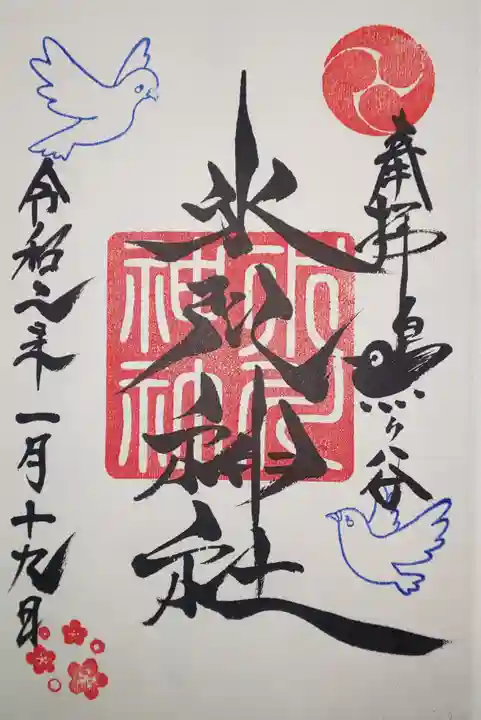 奉拝 鳩ヶ谷
氷川神社
令和二年一月十九日
氷川
神社